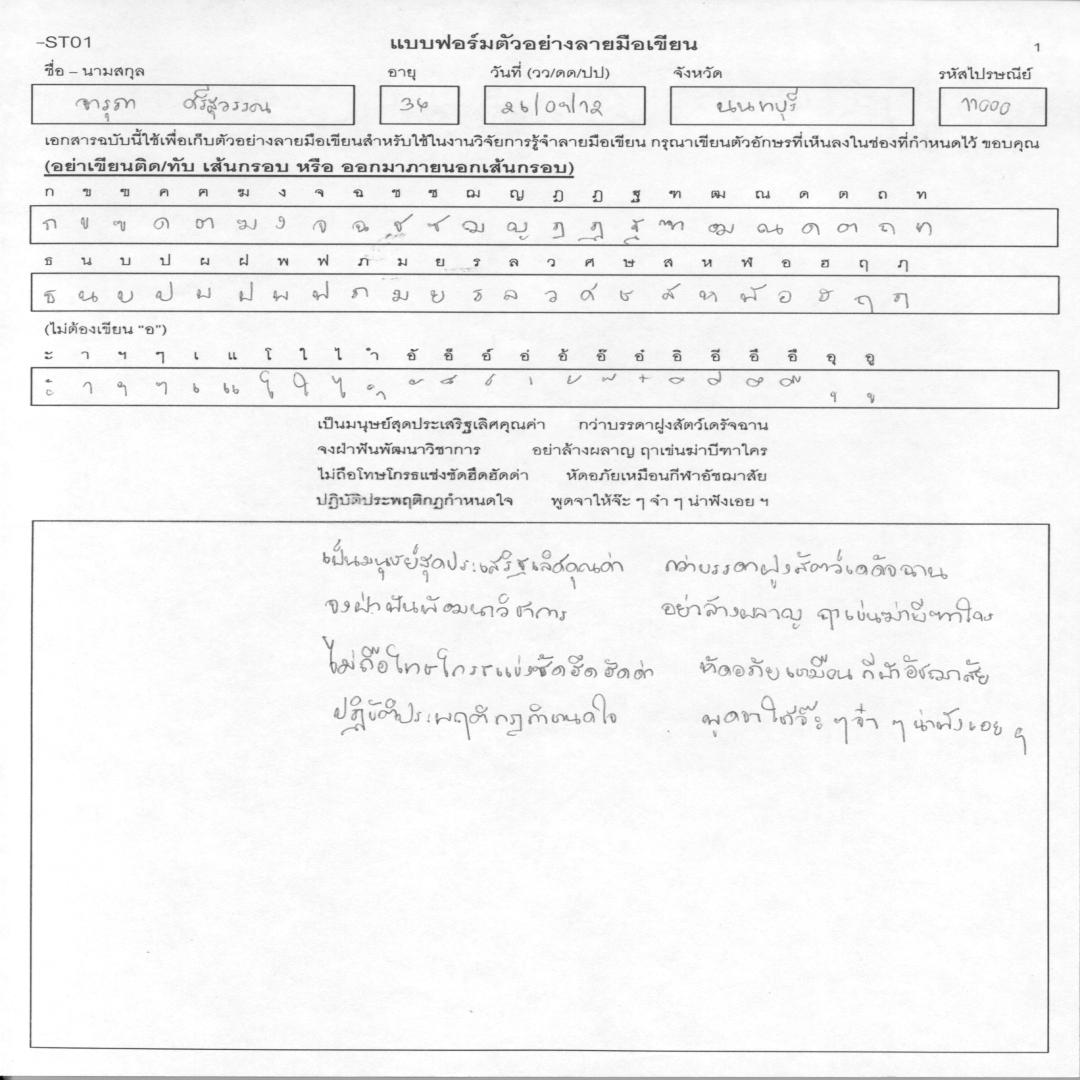 -ST01 แบบฟอร์มตัวอย่างลายมือเขียน 1
ชื่อ – นามสกุล อายุ วันที่ (วว/ดด/ปป) จังหวัด รหัสไปรษณีย์
จารุภา ศรีสุวรรณ 34 26/07/12 นนทบุรี 11000
เอกสารฉบับนี้ใช้เพื่อเก็บตัวอย่างลายมือเขียนสำหรับใช้ในงานวิจัยการรู้จำลายมือเขียน กรุณาเขียนตัวอักษรที่เห็นลงในช่องที่กำหนดไว้ ขอบคุณ
(อย่าเขียนติด/ทับ เส้นกรอบ หรือ ออกมาภายนอกเส้นกรอบ)
ก ข ฃ ค ฅ ฆ ง จ ฉ ช ซ ฌ ญ ฎ ฏ ฐ ฑ ฒ ณ ด ต ถ ท
ก ข ฃ ค ฅ ฆ ง จ ฉ ช ซ ฌ ญ ฎ ฏ ฐ ฑ ฒ ณ ด ต ถ ท
ธ น บ ป ผ ฝ พ ฟ ภ ม ย ร ล ว ศ ษ ส ห ฬ อ ฮ ฤ ฦ
ธ น บ ป ผ ฝ พ ฟ ภ ม ย ร ล ว ศ ษ ส ห ฬ อ ฮ ฤ ฦ
(ไม่ต้องเขียน "อ")
ะ า ฯ ๆ เ แ โ ใ ไ ำ อั อ็ อ์ อ่ อ้ อ๊ อ๋ อิ อี อึ อื อุ อู
ะ า ฯ ๆ เ แ โ ใ ไ ำ ั ็ ์ ่ ้ ๊ ๋ ิ ี ึ ื ุ ู
เป็นมนุษย์สุดประเสริฐเลิศคุณค่า กว่าบรรดาฝูงสัตว์เดรัจฉาน
จงฝ่าฟันพัฒนาวิชาการ อย่าล้างผลาญ ฤาเข่นฆ่าบีฑาใคร
ไม่ถือโทษโกรธแช่งซัดฮึดฮัดด่า หัดอภัยเหมือนกีฬาอัชฌาสัย
ปฏิบัติประพฤติกฎกำหนดใจ พูดจาให้จ๊ะ ๆ จ๋า ๆ น่าฟังเอย ฯ
เป็นมนุษย์สุดประเสริฐเลิศคุณค่า กว่าบรรดาฝูงสัตว์เดรัจฉาน
จงฝ่าฟันพัฒนาวิชาการ อย่าล้างผลาญ ฤาเข่นฆ่าบีฑาใคร
ไม่ถือโทษโกรธแช่งซัดฮึดฮัดด่า หัดอภัยเหมือนกีฬาอัชฌาสัย
ปฏิบัติประพฤติกฎกำหนดใจ พูดจาให้จ๊ะ ๆ จ๋า ๆ น่าฟังเอย ฯ